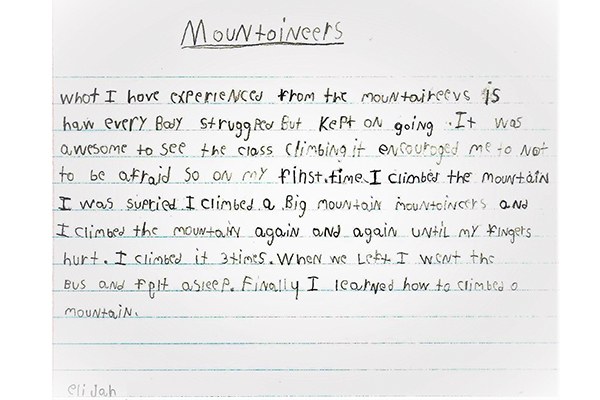 Mountaineers
what I have experienced from the mountaineevs is
haw every Body struggped But kept on going. It was
awesome to see the class climbing it encouraged me to not
to be afraid so on my finst.time I climbed the mountain
I was supried I climbed a Big mountain mountaineers and
I climbed the mountain again and again until my fingers
hurt. I climbed it 3times. when we left I went the
Bus and fplt asleep. Finally I learned how to climbed a
mountain.
elijah